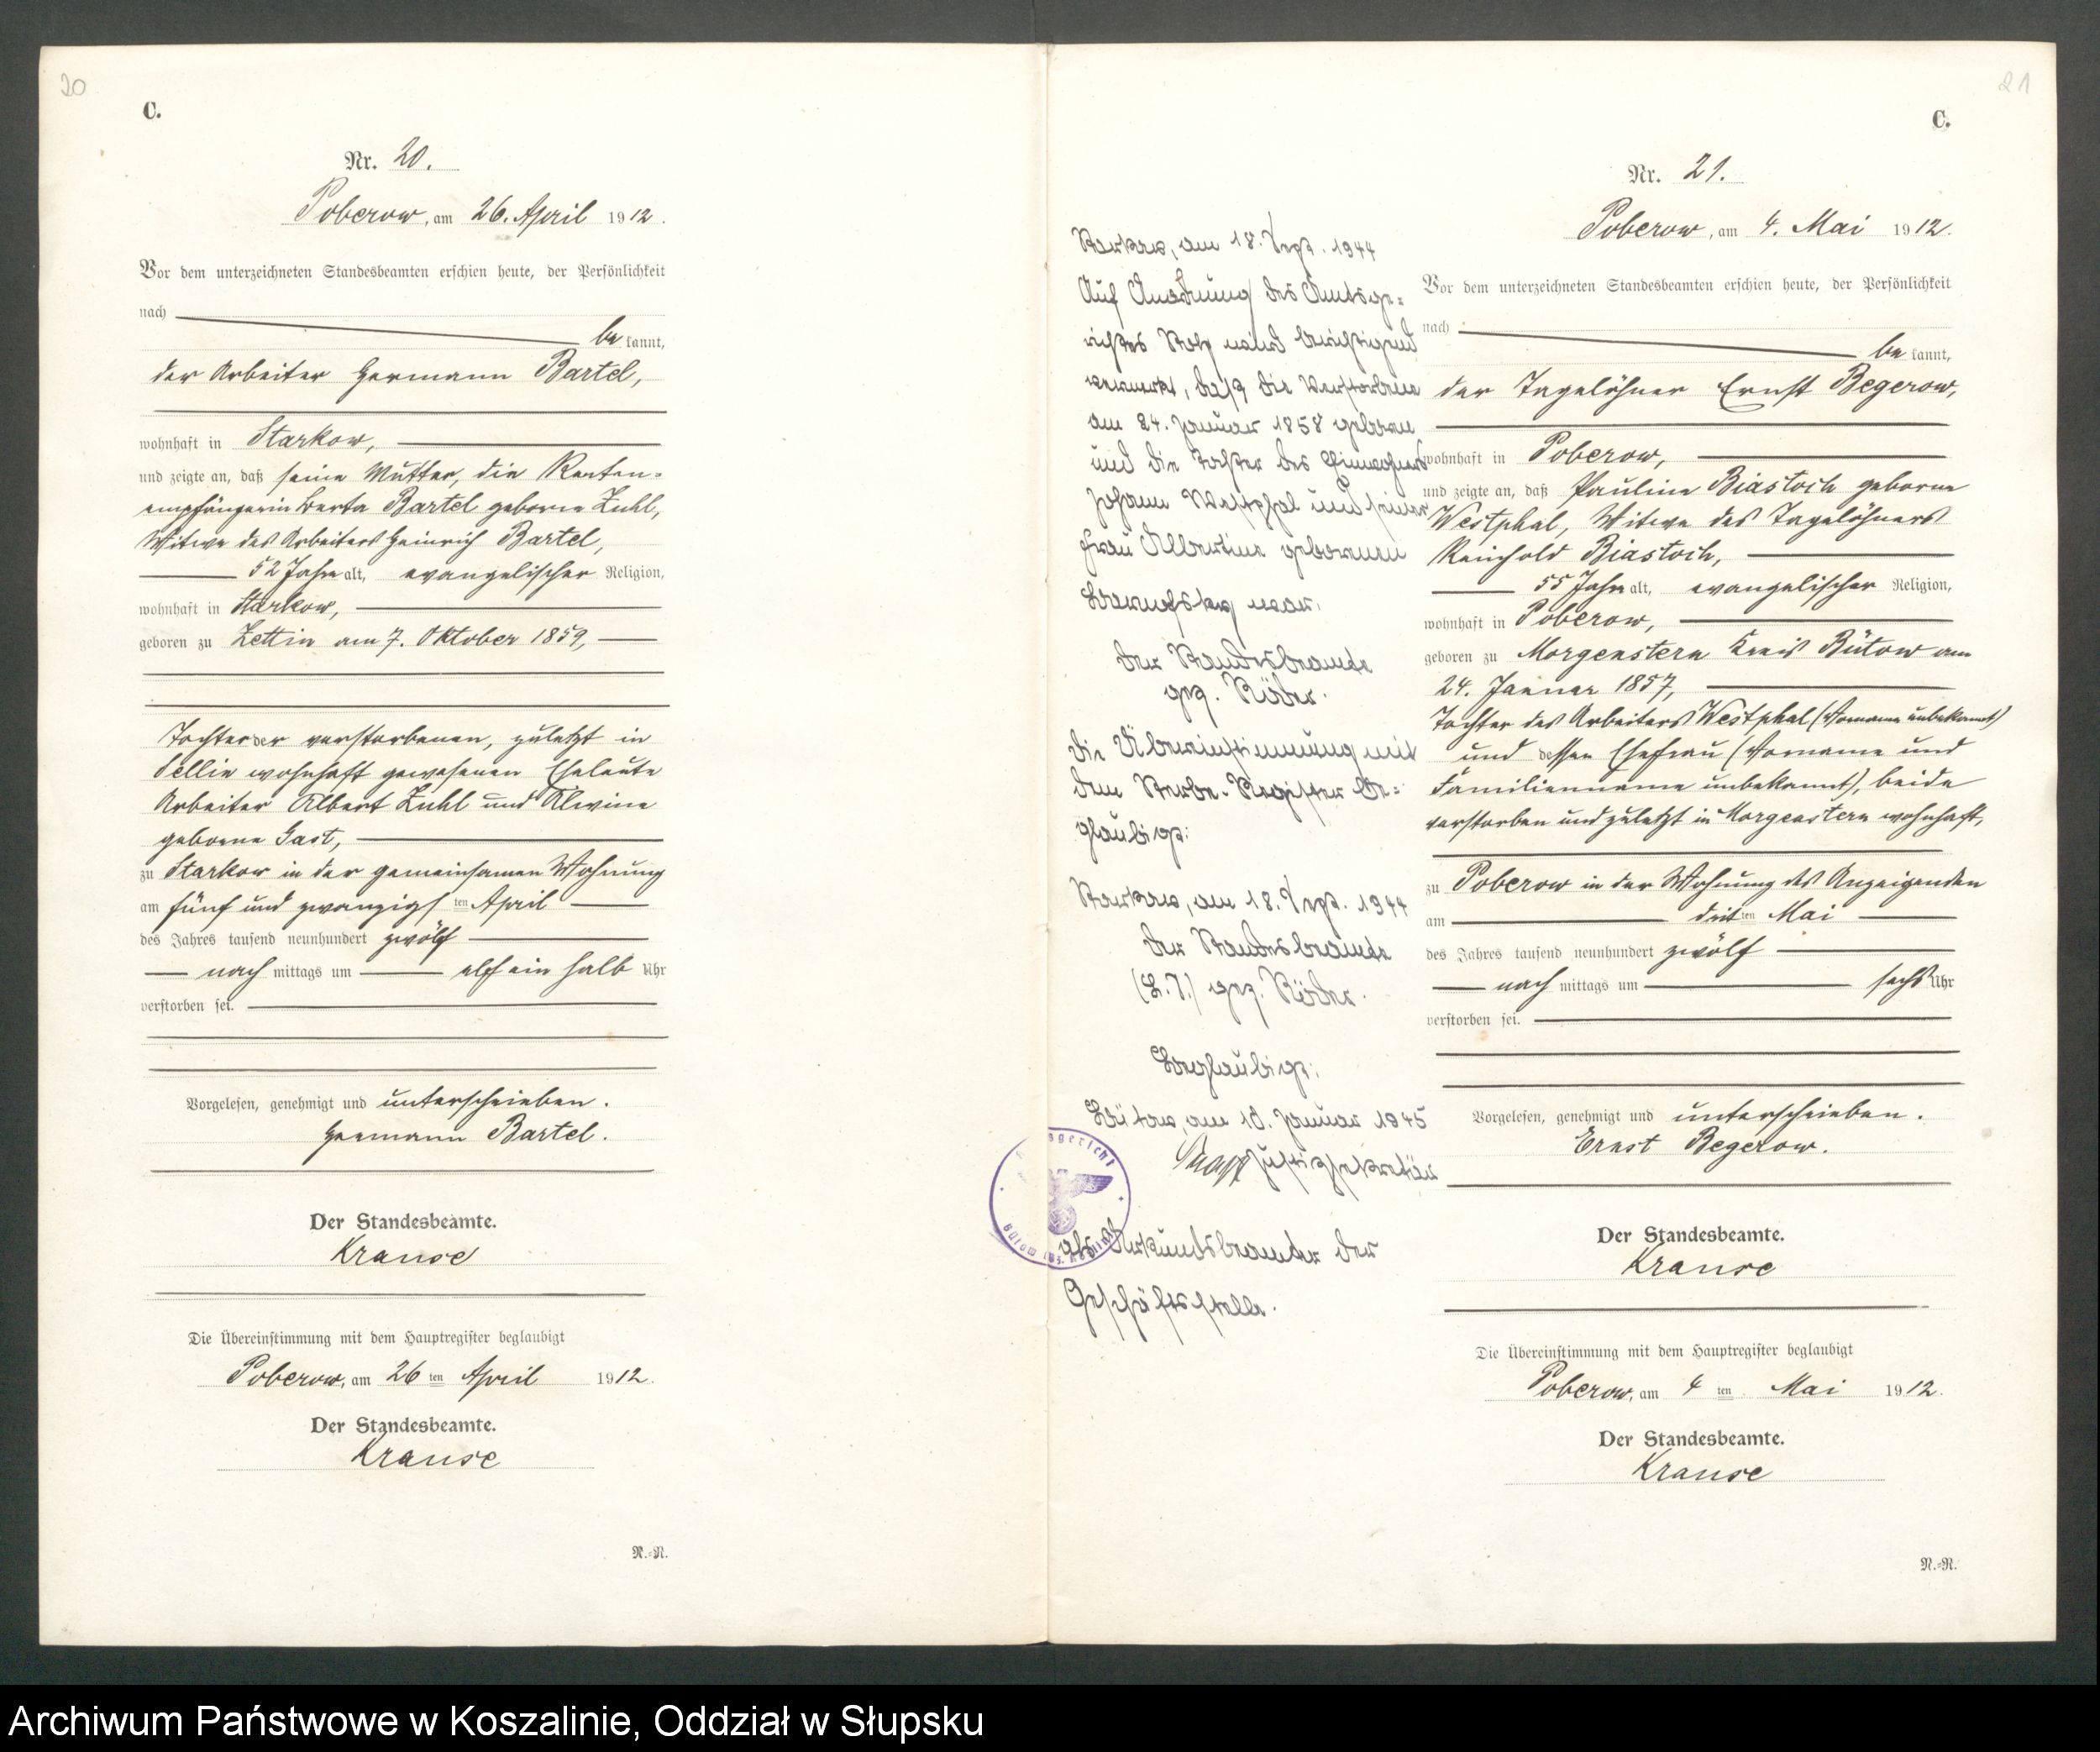 20
C.
Nr. 20.
Poberow, am 26. April 1912.
Vor dem unterzeichneten Standesbeamten erschien heute, der Persönlichkeit
nach
be kannt,
der Arbeiter Hermann Bartel,
wohnhaft in Starkow,
und zeigte an, daß seine Mutter, die Renten-
empfängerin Berta Bartel geborne Zuhl,
Witwe des Arbeiters Heinrich Bartel,
52 Jahre alt, evangelischer Religion,
wohnhaft in Starkow,
geboren zu Zettin am 7. Oktober 1859,
Tochter der verstorbenen, zuletzt in
Sellin wohnhaft gewesenen Eheleute
Arbeiter Albert Zuhl und Alwine
geborne Gast,
zu Starkow in der gemeinsamen Wohnung
am fünf und zwanzigsten April
des Jahres tausend neunhundert zwölf
nach mittags um elf ein halb Uhr
verstorben sei.
Vorgelesen, genehmigt und unterschrieben.
Hermann Bartel.
Der Standesbeamte.
Krause
Die Übereinstimmung mit dem Hauptregister beglaubigt
Poberow, am 26 ten April 1912.
Der Standesbeamte.
Krause
R.-N.
Starkow, am 18. Sept. 1944
Auf Anordnung des Amtsge-
richtes Stolp wird berichtigend
vermerkt, daß die Verstorbene
am 24. Januar 1858 geboren
und die Tochter des Einwohners
Johann Westphal und seiner
Frau Albertine geborenen
war.
Der Standesbeamte
gez. Röder.
Die Übereinstimmung mit
dem Sterbe-Register be-
glaubigt:
Starkow, am 18. Sept. 1944
Der Standesbeamte
(L.S.) gez. Röder.
Beglaubigt:
Bütow, am 10. Januar 1945
Justizsekretär
als Urkundsbeamter der
Geschäftsstelle.
21
C.
Nr. 21.
Poberow, am 4. Mai 1912.
Vor dem unterzeichneten Standesbeamten erschien heute, der Persönlichkeit
nach
be kannt,
der Tagelöhner Ernst Begerow,
wohnhaft in Poberow,
und zeigte an, daß Pauline Biastoch geborne
Westphal, Witwe des Tagelöhners
Reinhold Biastoch,
55 Jahre alt, evangelischer Religion,
wohnhaft in Poberow,
geboren zu Morgenstern Kreis Bütow am
24. Januar 1857,
Tochter des Arbeiters Westphal (Vorname unbekannt)
und dessen Ehefrau (Vorname und
Familienname unbekannt), beide
verstorben und zuletzt in Morgenstern wohnhaft,
zu Poberow in der Wohnung des Anzeigenden
am dritten Mai
des Jahres tausend neunhundert zwölf
nach mittags um sechs Uhr
verstorben sei.
Vorgelesen, genehmigt und unterschrieben.
Ernst Begerow.
Der Standesbeamte.
Krause
Die Übereinstimmung mit dem Hauptregister beglaubigt
Poberow, am 4 ten Mai 1912.
Der Standesbeamte.
Krause
R.-N.
Archiwum Państwowe w Koszalinie, Oddział w Słupsku